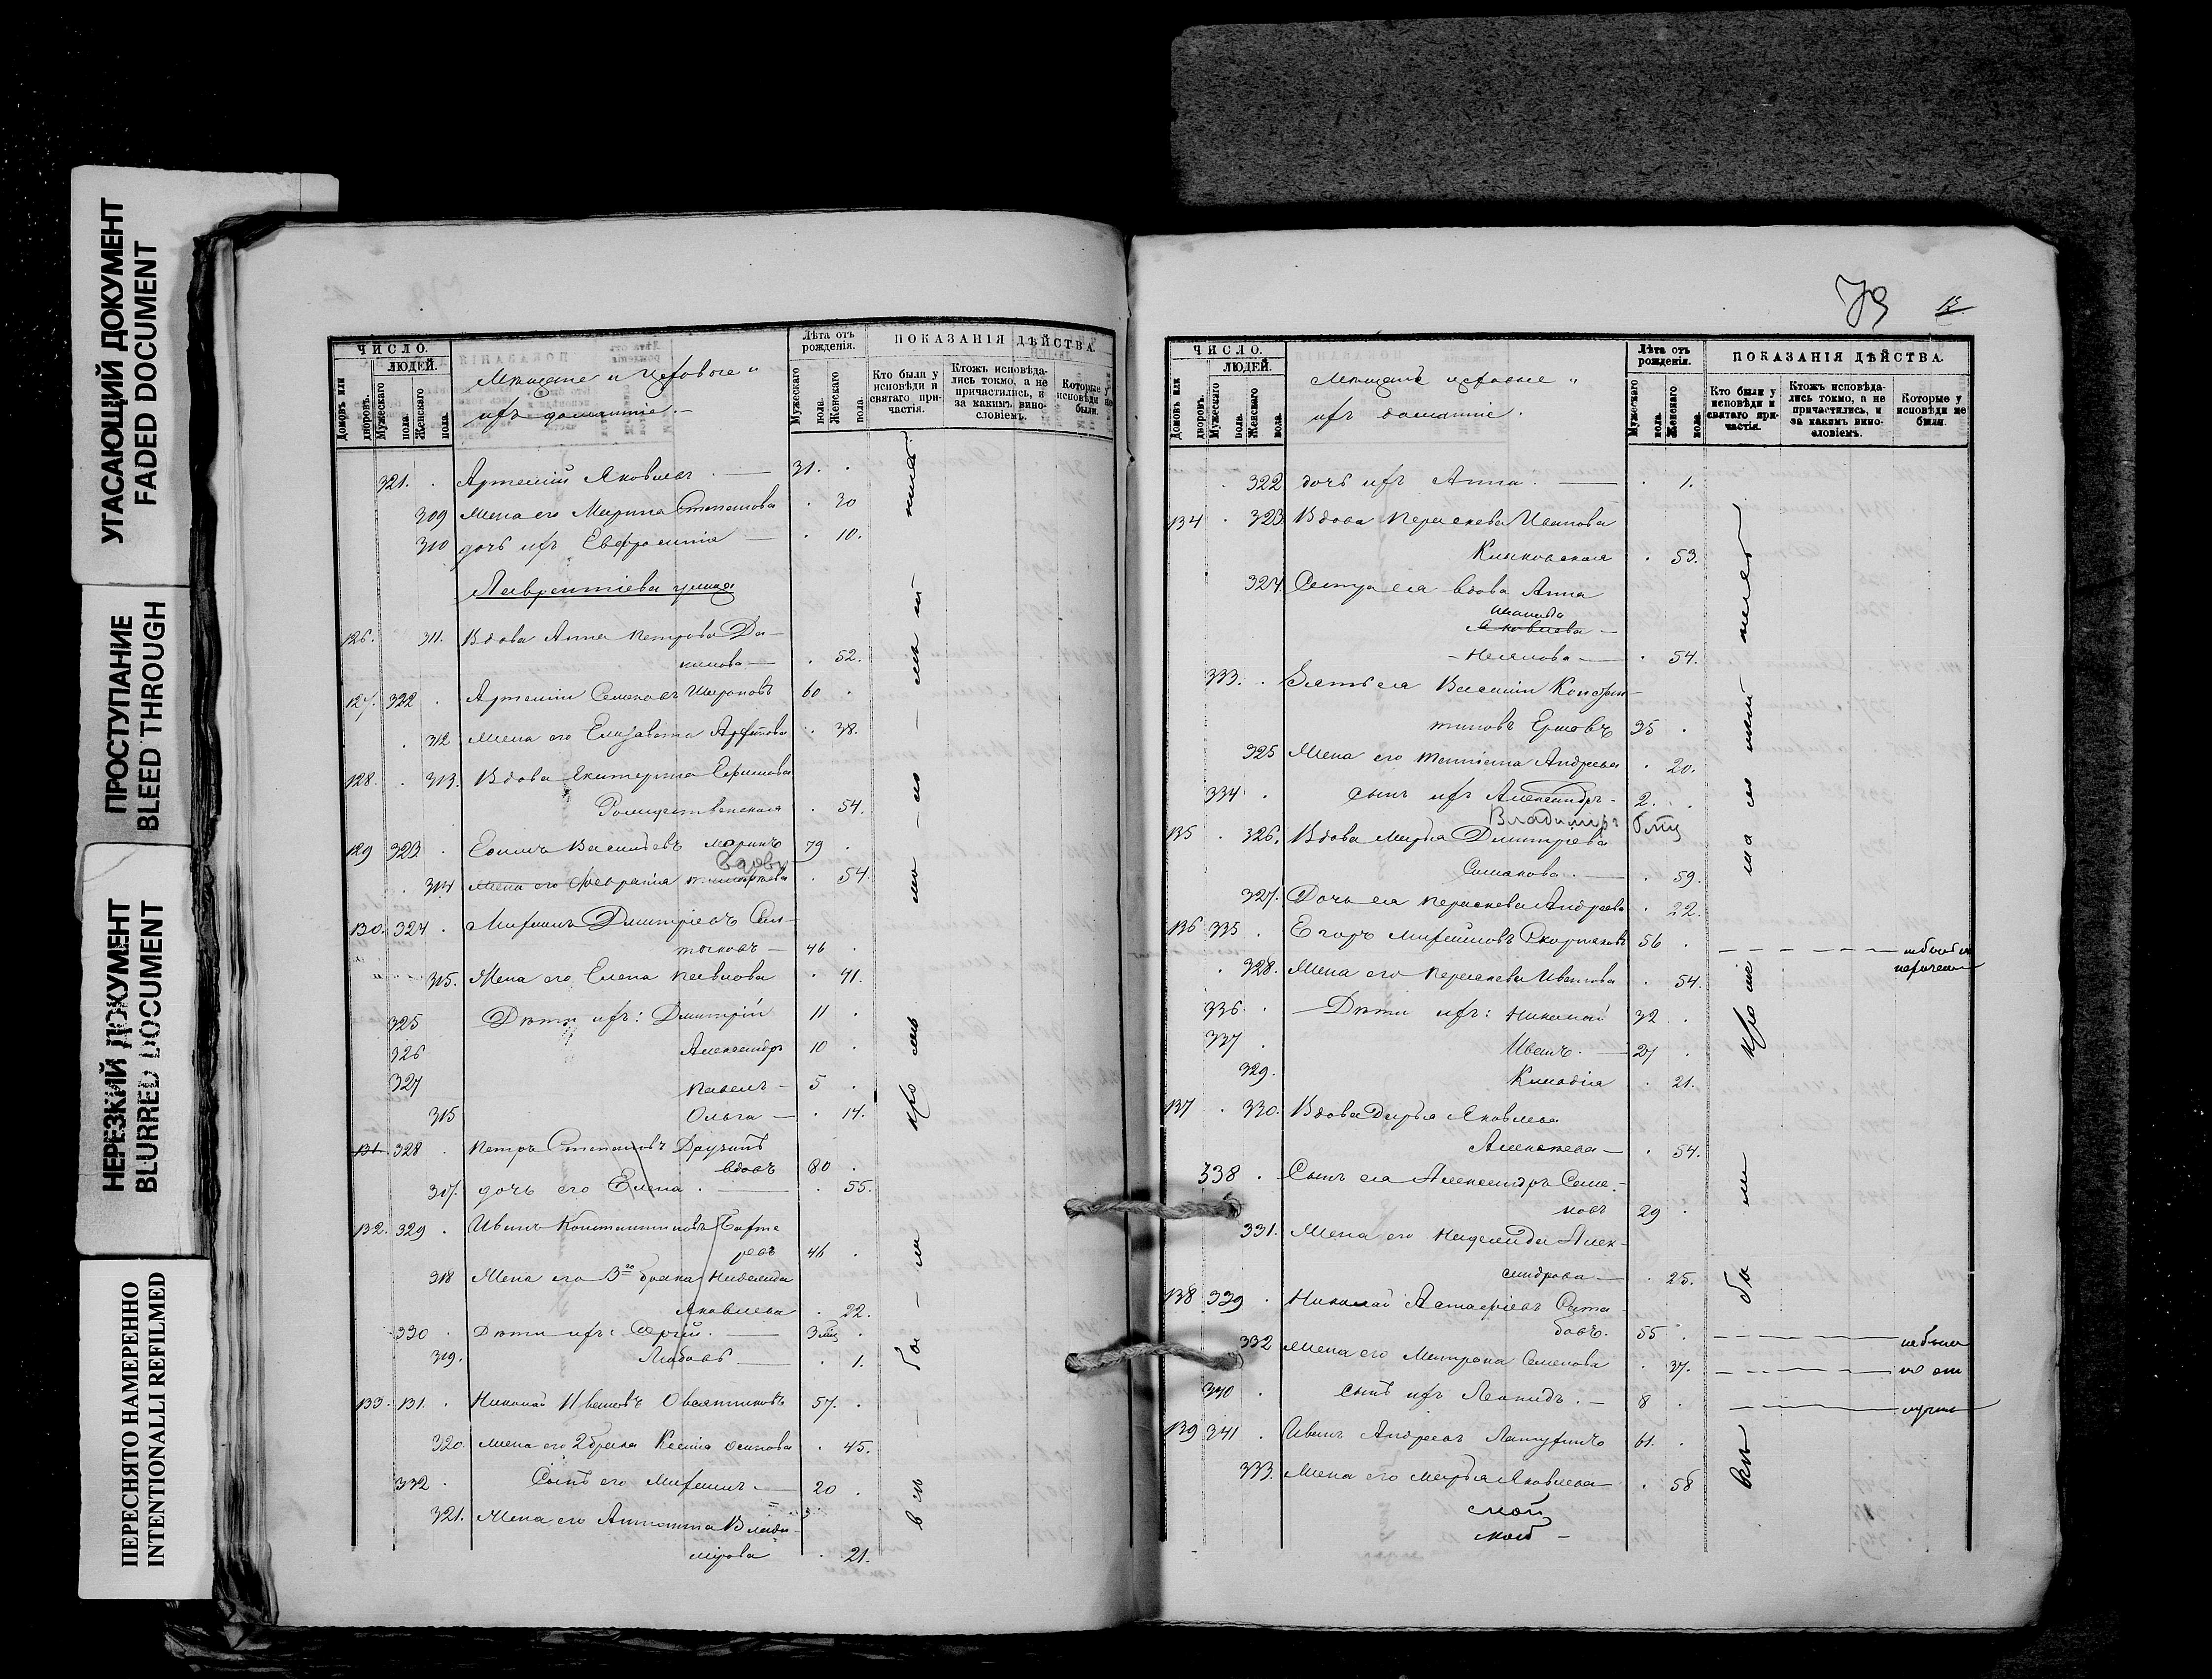 УГАСАЮЩИЙ ДОКУМЕНТ
FADED DOCUMENT
ПРОСТУПАНИЕ
BLEED THROUGH
НЕРЕЗКИЙ ДОКУМЕНТ
BLURRED DOCUMENT
ПЕРЕСНЯТО НАМЕРЕННО
INTENTIONALLI REFILMED
ЧИСЛО.
ЛЮДЕЙ.
Домовъ или дворовъ.
Мужескаго пола.
Женскаго пола.
Мѣщане и Цеховые и
ихъ домашніе.
Лѣта отъ рожденія.
Мужескаго пола.
Женскаго пола.
ПОКАЗАНІЯ ДѢЙСТВА.
Кто были у исповѣди и святаго причастія.
Ктожъ исповѣдались токмо, а не причастились, и за какимъ винословіемъ.
Которые у исповѣди не были.
321. Артемій Яковлевъ. — 31.
309 Жена его Марина Степанова 30
310 дочь ихъ Евфросинія — 10.
Лаврентіева улица
126. 311. Вдова Анна Петрова Да-
нилова — 52.
127. 322 Артемій Семеновъ Шароновъ 60
312 Жена его Елизавета 38.
128. 313. Вдова Екатерина Ефимова
Рождественская 54.
129 323 Васильевъ 79
Вдова
314 Жена его 54.
130. 324 Михаилъ Дмитріевъ Сал-
тыковъ — 46
315. Жена его Елена Павлова 41.
325 Дѣти ихъ: Дмитрій 11
326 Александръ 10
327 Павелъ — 5
315 Ольга — 14.
131. 328 Петръ Степановъ
вдовъ 80
317. дочь его Елена. — 55.
132. 329 Иванъ Константиновъ Бахте
ревъ 46
318 Жена его 3го брака Надежда
Яковлева 22.
330 Дѣти ихъ: Сергій. — 3 мц
319. Любовь — 1.
133. 131. Николай Ивановъ Овсянниковъ 57.
320. Жена его 2 брака Ксенія Осипова 45.
332 Сынъ его Михаилъ — 20
321. Жена его Антонина Влади-
мірова 21.
79
ЧИСЛО.
ЛЮДЕЙ.
Домовъ или дворовъ.
Мужескаго пола.
Женскаго пола.
Мѣщане цеховые и
ихъ домашніе.
Лѣта отъ рожденія.
Мужескаго пола.
Женскаго пола.
ПОКАЗАНІЯ ДѢЙСТВА.
Кто были у исповѣди и святаго причастія.
Ктожъ исповѣдались токмо, а не причастились, и за какимъ винословіемъ.
Которые у исповѣди не были.
322 дочь ихъ Анна. — 1.
134 323 Вдова Параскева Иванова
53.
324. Сестра ея вдова Анна
Иванова
Яковлева —
54.
333. Зять ея Василій Констан-
тиновъ Ершовъ 35
325 Жена его Андреева 20.
334 сынъ ихъ Александръ — 2.
Владиміръ 6 мц
135 326. Вдова Марья Димитріева
Симакова. — 59.
327. Дочь ея Параскева Андреева 22.
136 335 Егоръ Михайловъ 56
328. Жена его Параскева Иванова 54.
336. Дѣти ихъ: Николай 32
337 Иванъ. — 27
329. Клавдія 21.
137 330. Вдова Дарья Яковлева
Алексеева — 54.
338 Сынъ ея Александръ Семе-
новъ 29
331. Жена его Надежда Алек-
сандрова — 25.
138 339 Николай
55
332 Жена его Матрона Семенова 37.
340 Сынъ ихъ Леонидъ. — 8
139 341 Иванъ Андреевъ 61.
333. Жена его Марья Яковлева 58